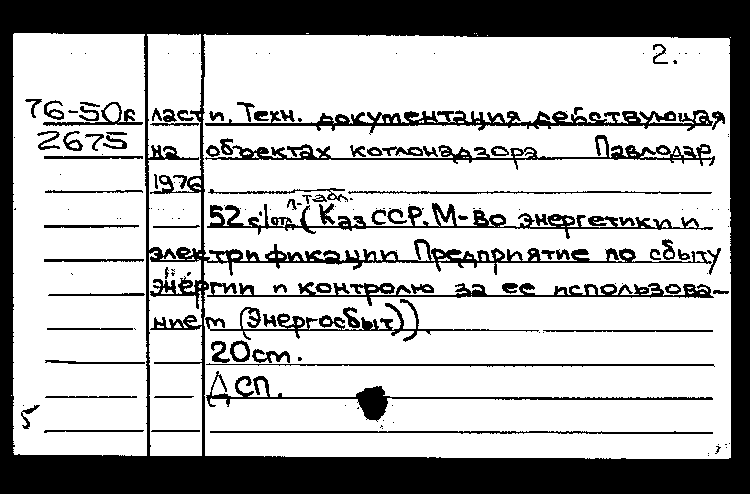 2.
76-50в ласти. Техн. документация, действующая
2675 на объектах котлонадзора. Павлодар,
1976.
л. табл.
52 с; 1 отд. (КазССР. М-во энергетики и
электрификации Предприятие по сбыту
энергии и контролю за ее использова-
нием (Энергосбыт)).
20 ст.
ДСП.
5